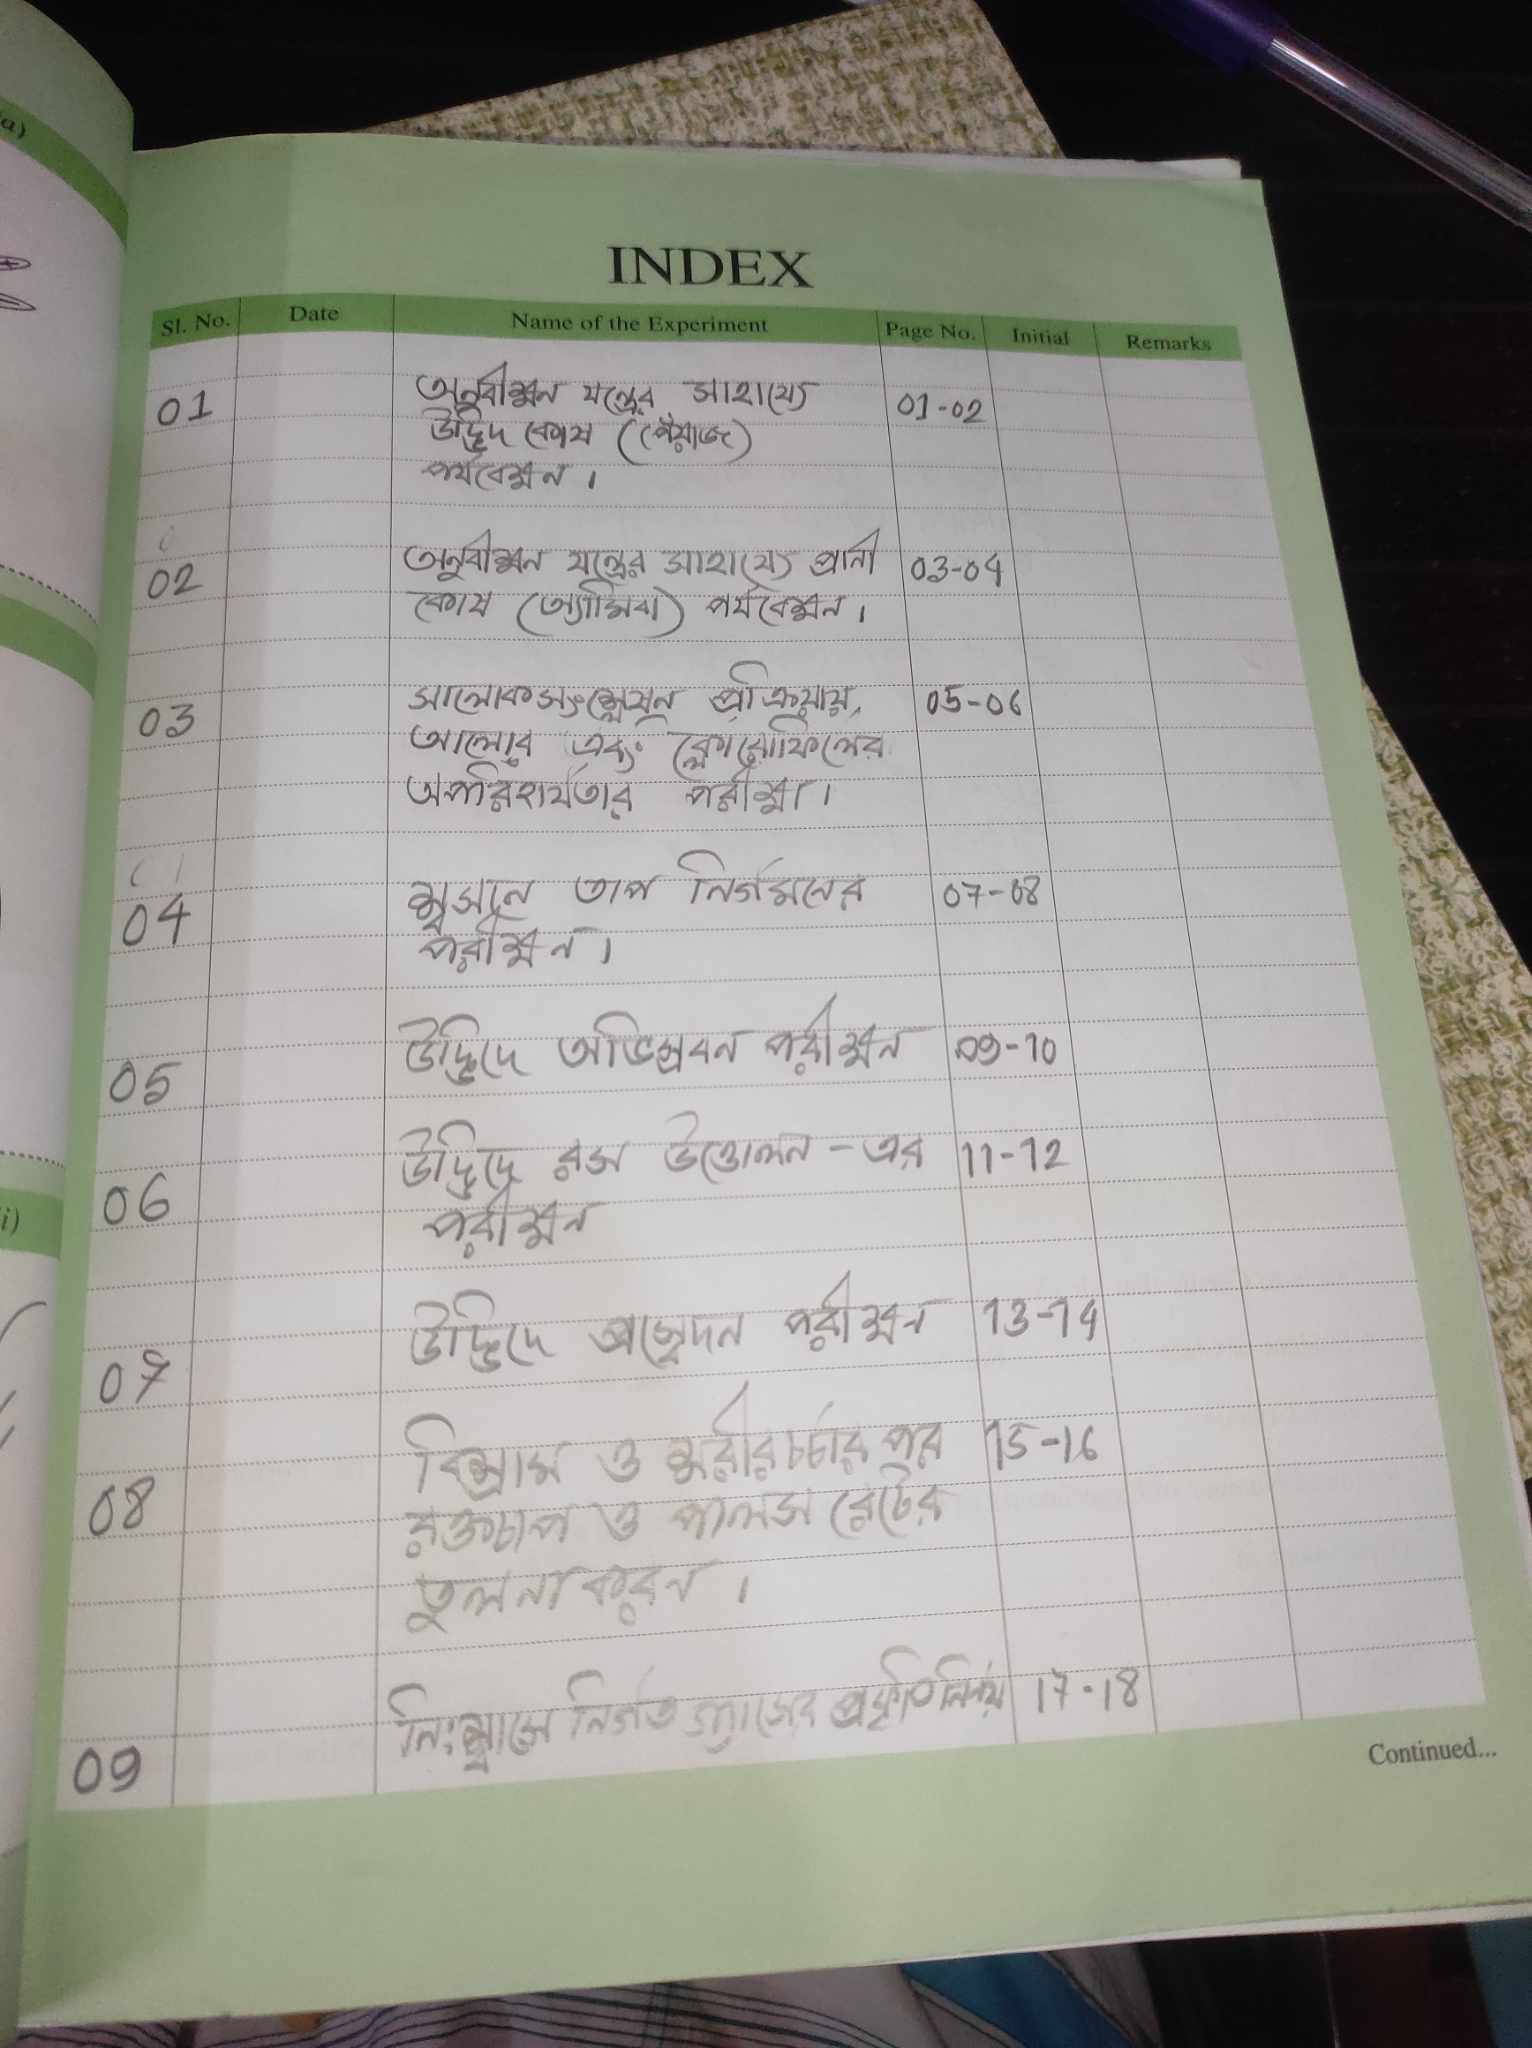 a)
i)
INDEX
Sl. No. Date Name of the Experiment Page No. Initial Remarks
01 অনুবীক্ষন যন্ত্রের সাহায্যে 01-02
উদ্ভিদ কোষ (পেঁয়াজ)
পর্যবেক্ষন।
02 অনুবীক্ষন যন্ত্রের সাহায্যে প্রানী 03-04
কোষ (অ্যামিবা) পর্যবেক্ষন।
03 সালোকসংশ্লেষন প্রক্রিয়ায় 05-06
আলোর এবং ক্লোরোফিলের
অপরিহার্যতার পরীক্ষা।
04 শ্বসনে তাপ নির্গমনের 07-08
পরীক্ষন।
05 উদ্ভিদে অভিস্রবন পরীক্ষন 09-10
06 উদ্ভিদে রস উত্তোলন-এর 11-12
পরীক্ষন
07 উদ্ভিদে প্রস্বেদন পরীক্ষন 13-14
08 বিশ্রাম ও শরীরচর্চার পর 15-16
রক্তচাপ ও পালস রেটের
তুলনাকরন।
09 নিঃশ্বাসে নির্গত গ্যাসের প্রকৃতি নির্ণয় 17-18
Continued...